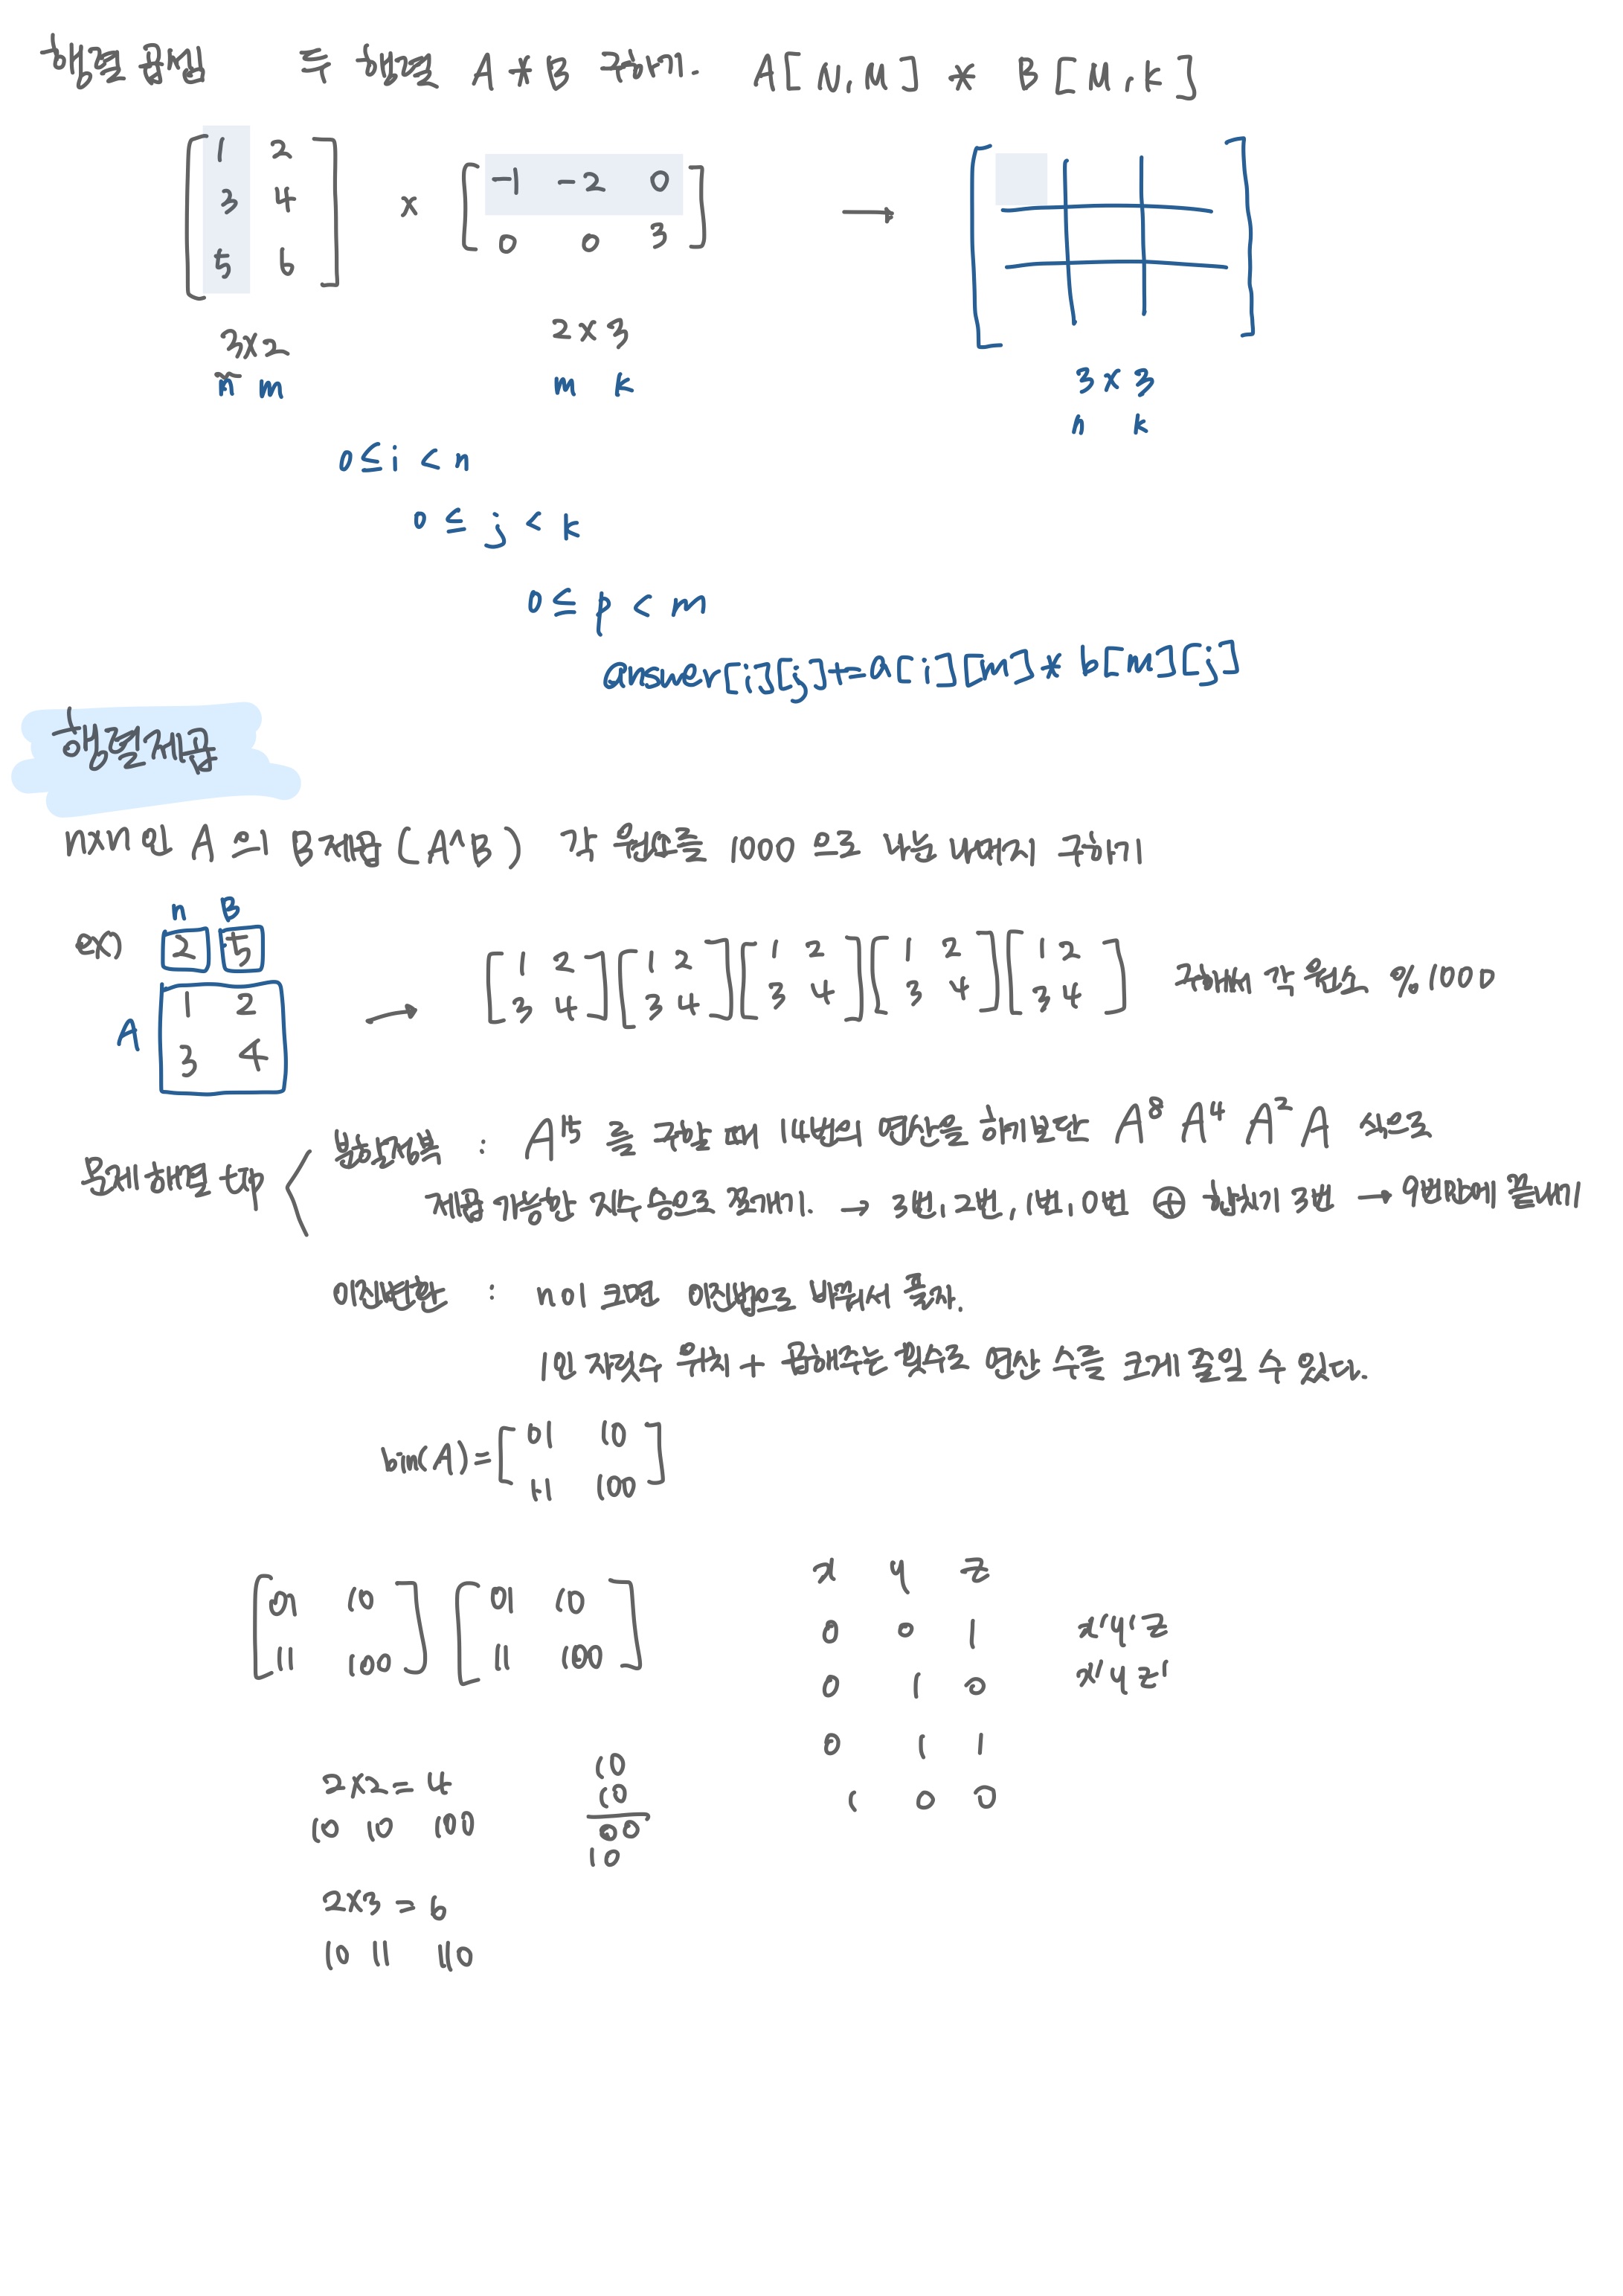 행렬 곱셈 두 행렬 A * B 구하기. A[N,M] * B[M,k]
1 2
3 4
5 6
x
-1 -2 0
0 0 3
→
3x2
n m
2x3
m k
3x3
n k
0 ≤ i < n
0 ≤ j < k
0 ≤ p < m
answer[i][j]+=a[i][m]* b[m][j]
행렬제곱
nxn인 A의 B제곱(A^B) 각 원소를 1000으로 나눈 나머지 구하기
n B
ex) 2 5
A
1 2
3 4
→
1 2 1 2 1 2 1 2 1 2
3 4 3 4 3 4 3 4 3 4
구해서 각 원소 %1000
문제해결 tip
분할정복 : A¹⁵ 를 구할 때 14번의 연산을 하기보단 A⁸ A⁴ A² A 식으로
제곱 가능한 지수승으로 쪼개기. → 3번, 2번, 1번, 0번 ⊕ 합치기 3번 → 9번만에 끝내기
이진변환 : n이 크면 이진법으로 바꿔서 풀자.
1인 자릿수 위치 + 곱해주는 횟수로 연산 수를 크게 줄일 수 있다.
bin(A)=
01 10
11 100
01 10 01 10
11 100 11 100
x y z
0 0 1 x'y'z
0 1 0 x'yz'
0 1 1
1 0 0
2x2=4
10 10 100
10
10
00
10
2x3=6
10 11 110